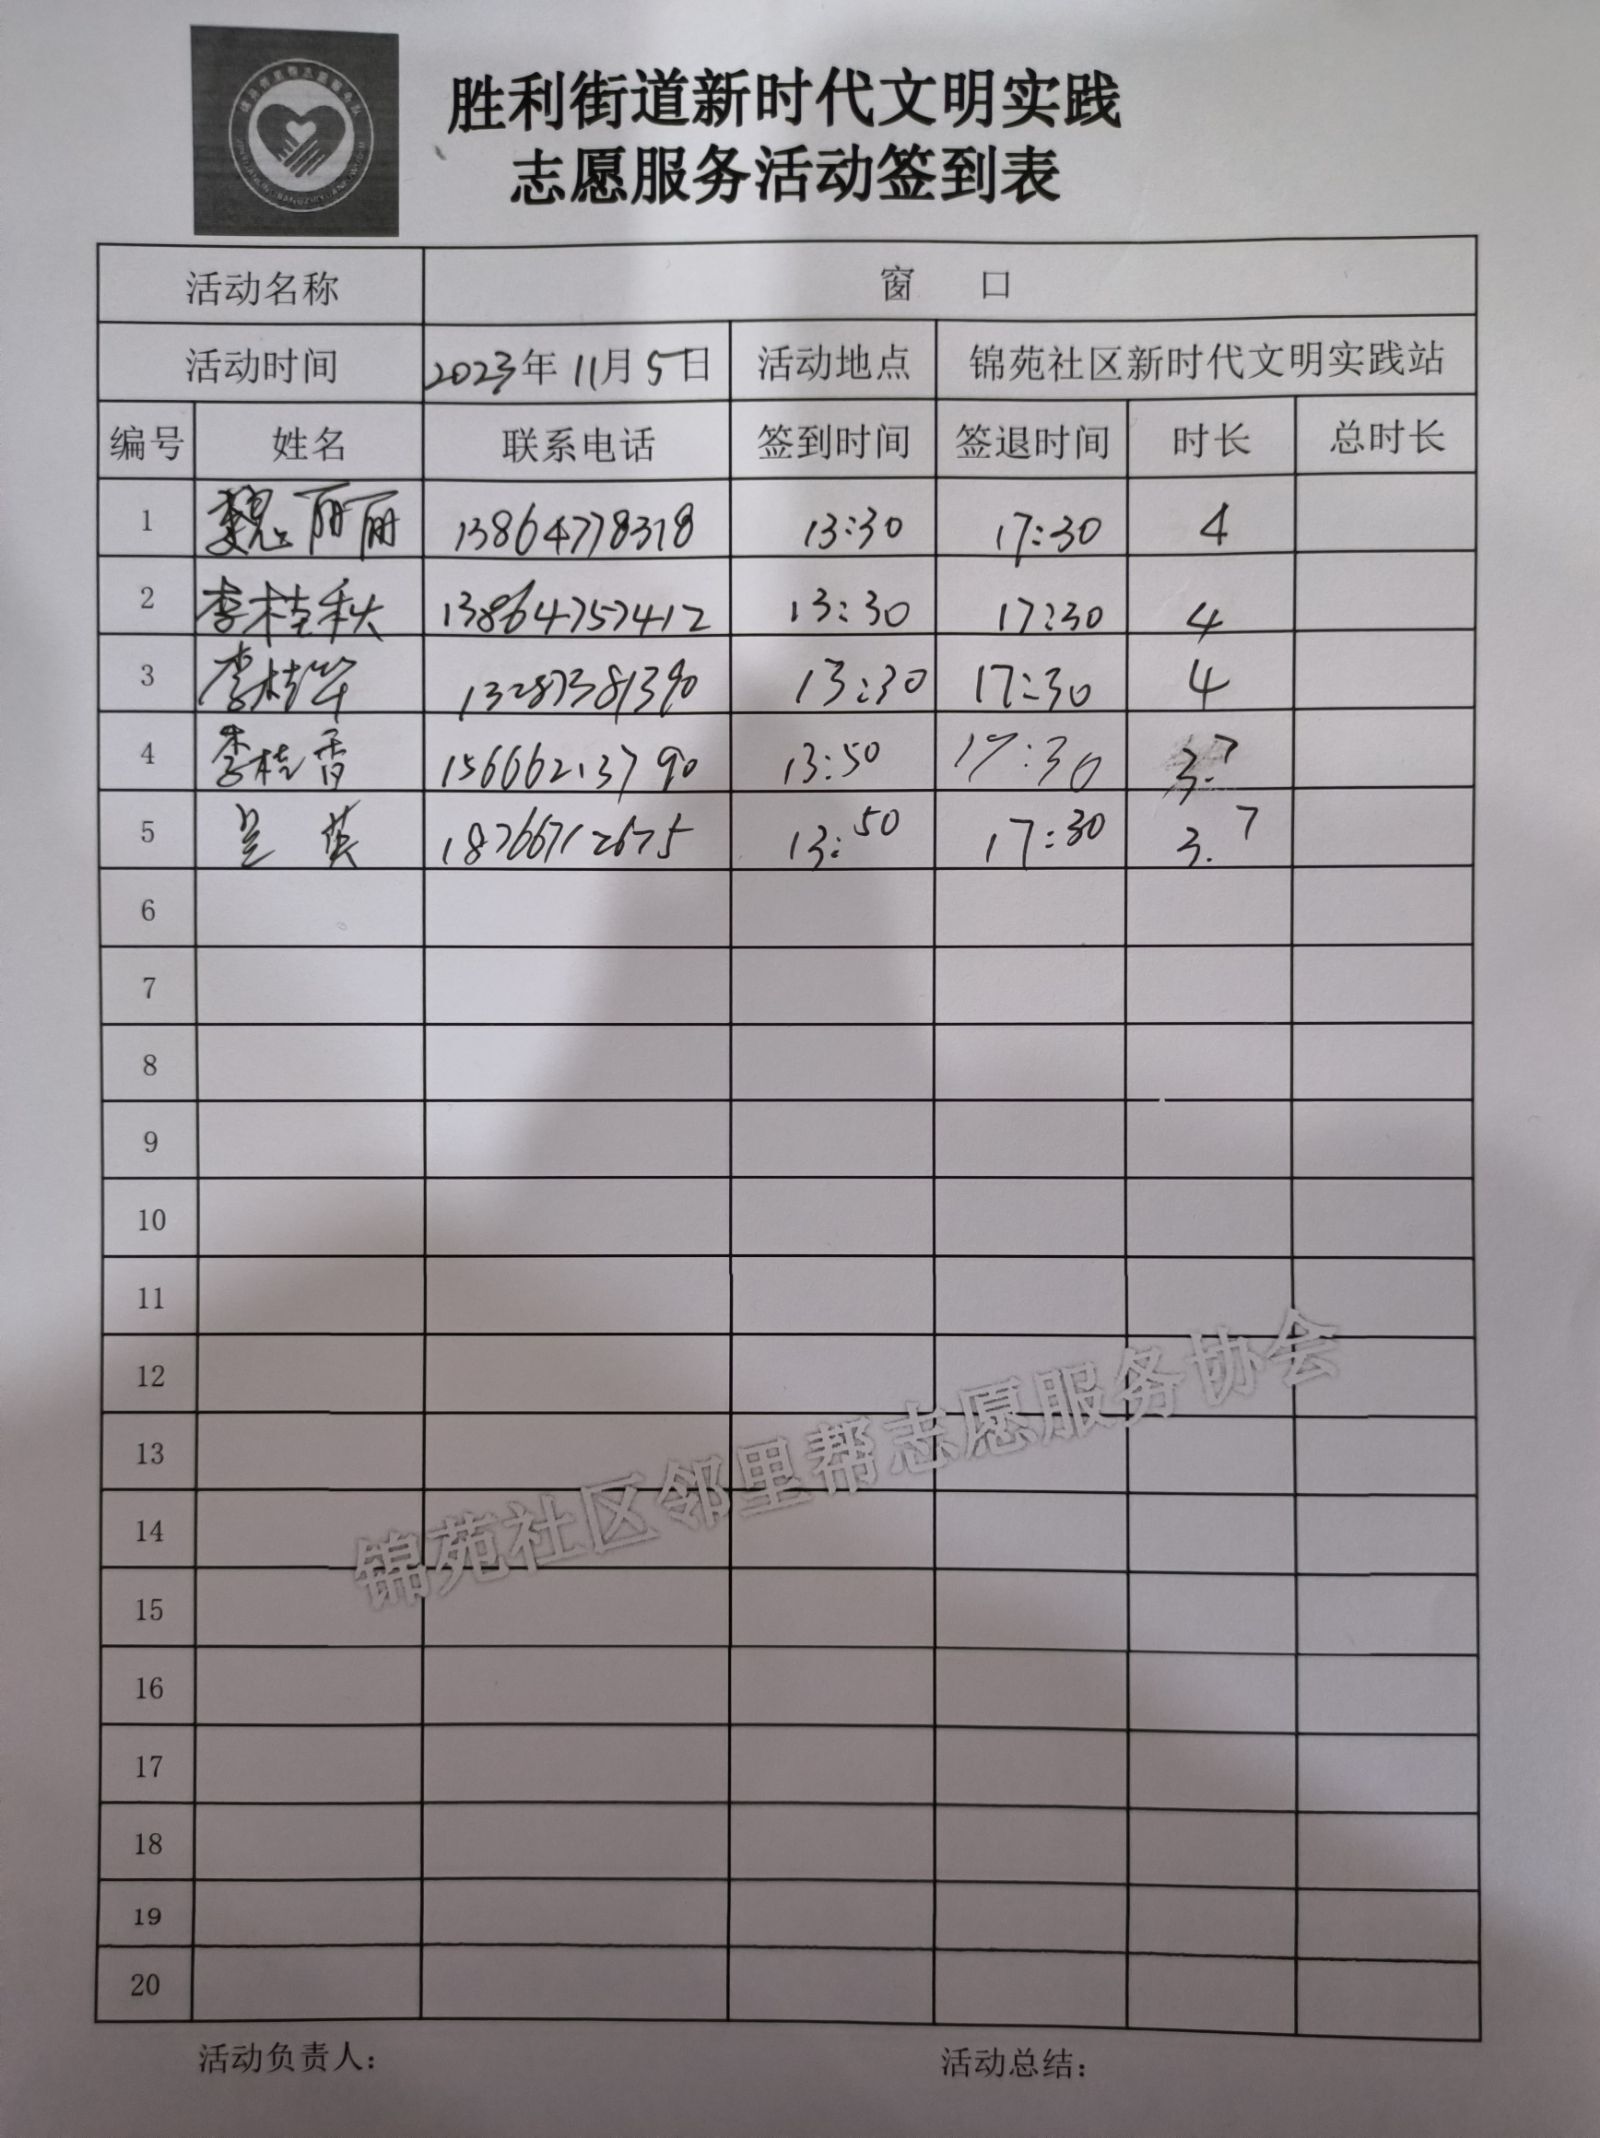 胜利街道新时代文明实践
志愿服务活动签到表
活动名称 窗 口
活动时间 2023年11月5日 活动地点 锦苑社区新时代文明实践站
编号 姓名 联系电话 签到时间 签退时间 时长 总时长
1 魏丽丽 13864778318 13:30 17:30 4
2 李桂秋 13864757412 13:30 17:30 4
3 李桂华 13287381390 13:30 17:30 4
4 李桂香 15666213790 13:50 17:30 3.7
5 兰英 18766712675 13:50 17:30 3.7
6
7
8
9
10
11
12
13
14
15
16
17
18
19
20
锦苑社区邻里帮志愿服务协会
活动负责人： 活动总结：